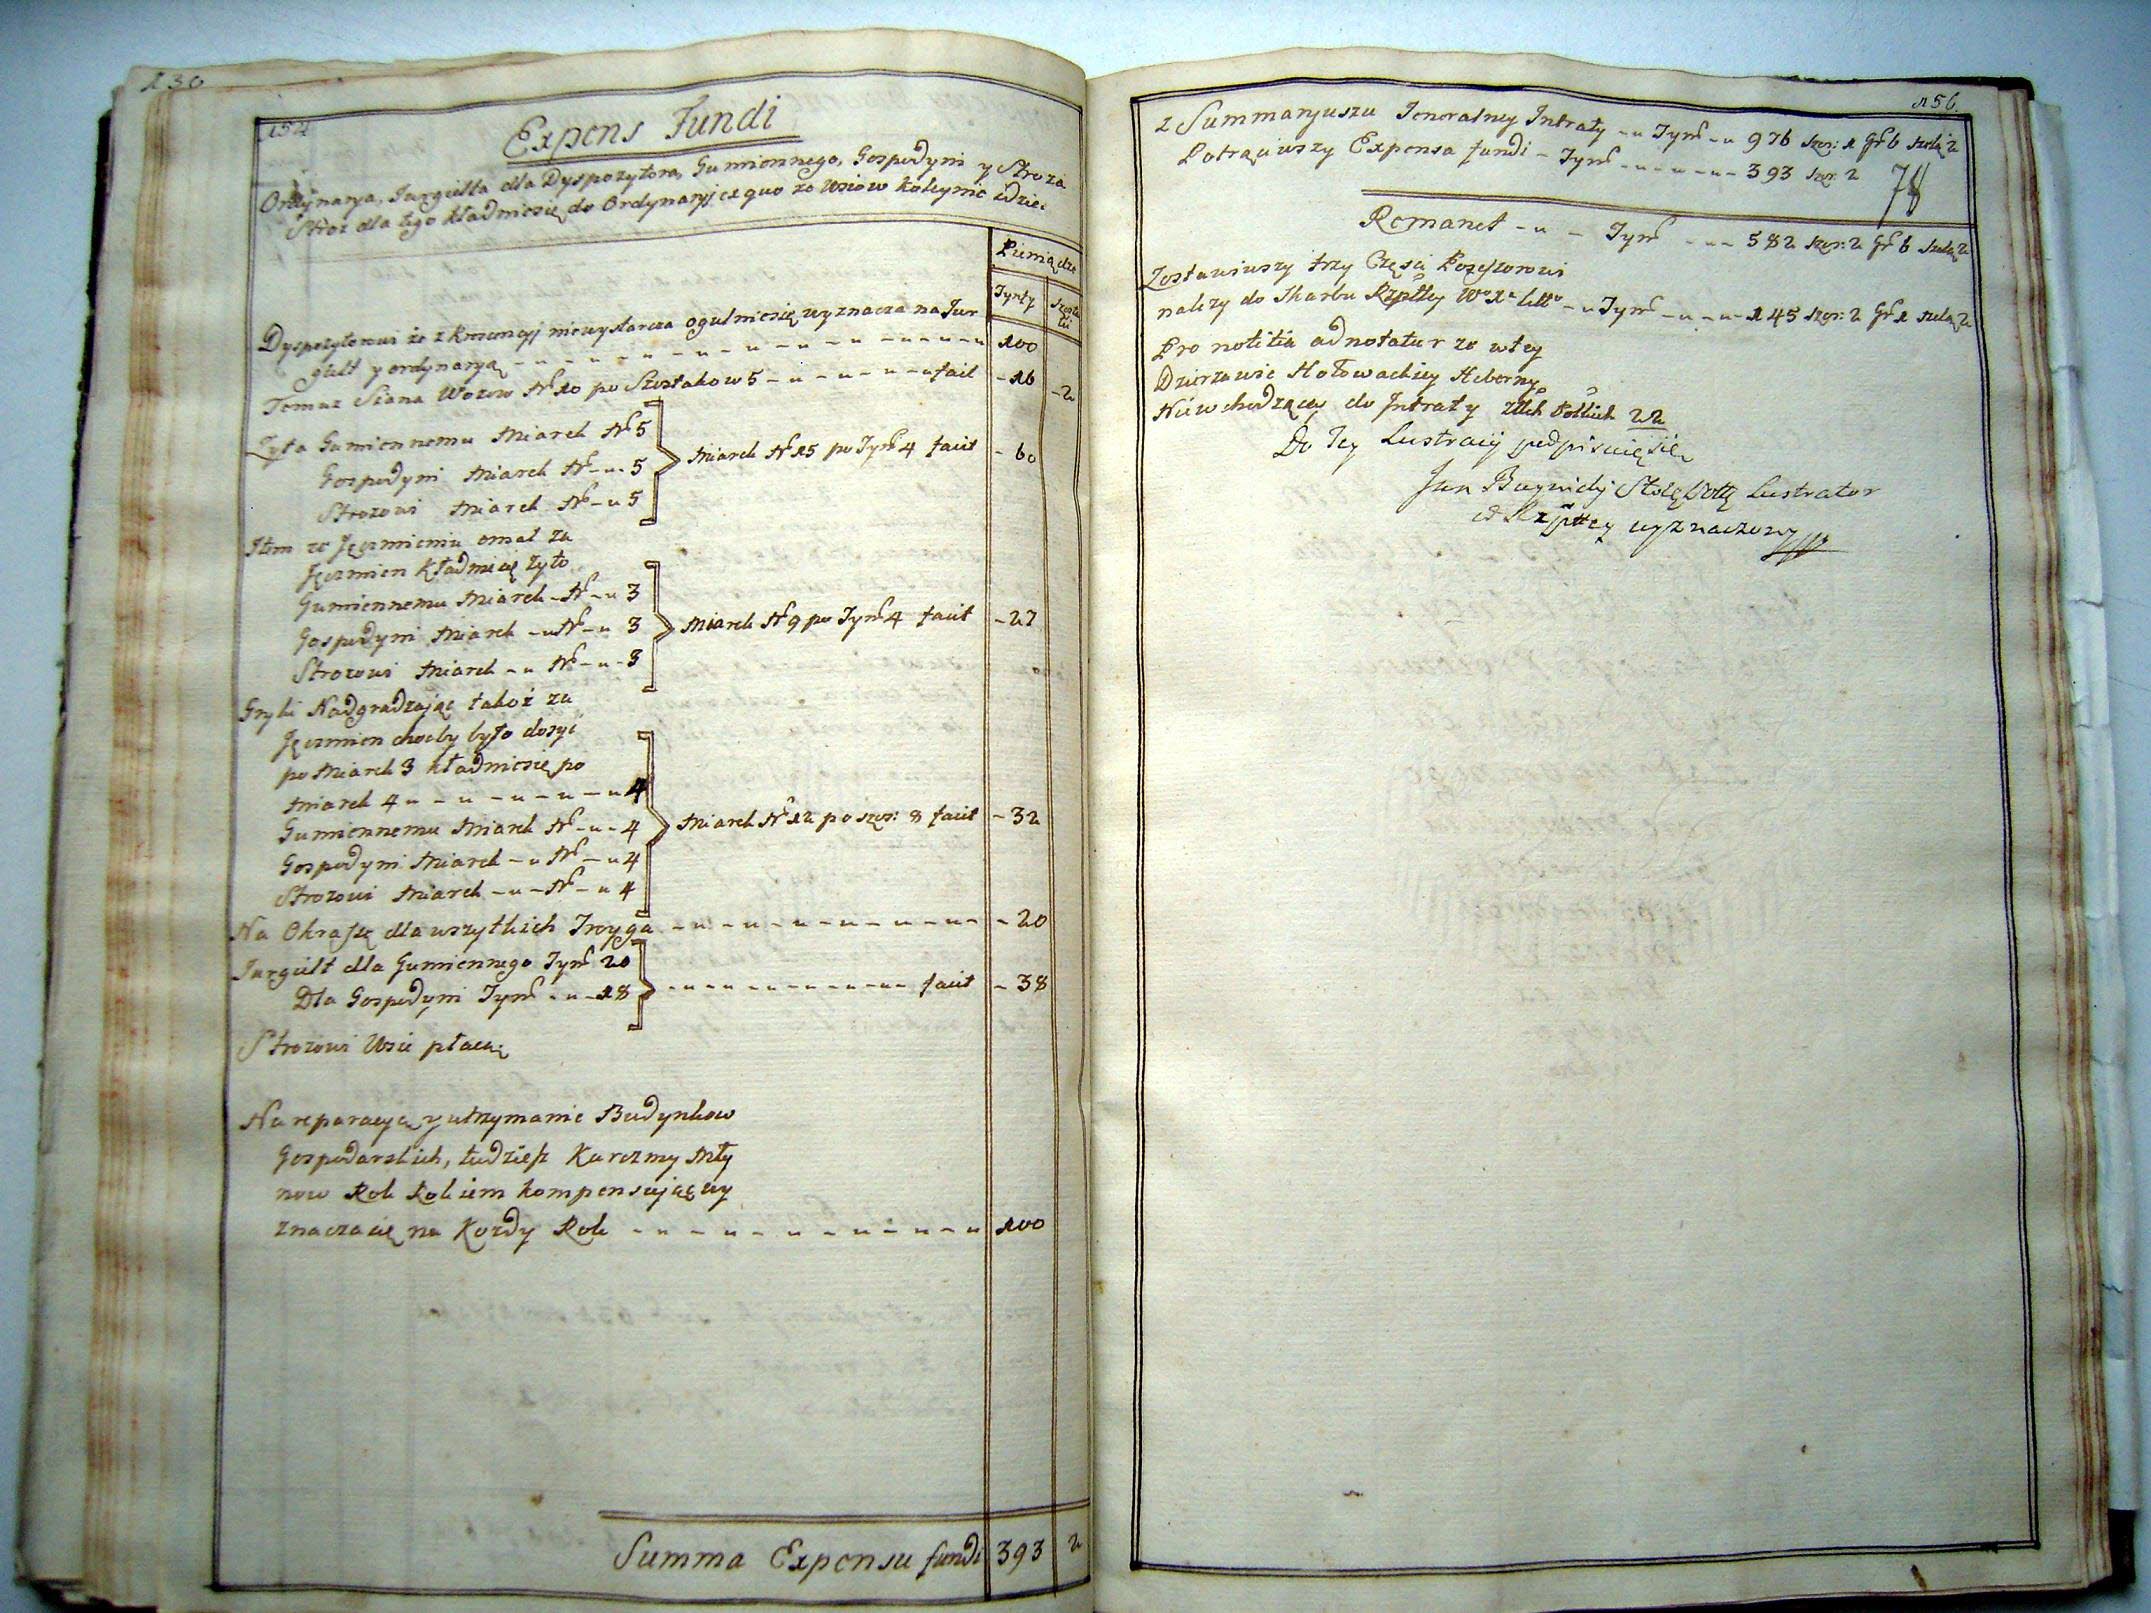 130
152
Expens Fundi
Ordynarya, Jurgiełła dla Dyspozytora, Gumiennego, Gospodyni y Stroża
Stroż dla tego kładniesię do Ordynaryi, ex quo ze Wsiow koleynie idzie.
Pieniądze
Tynfy Szosta
ki
Dyspozytorowi że z Krescencyi niewystarcza ogulniesię wyznacza na Jur
gielt y ordynaryą 100
Temuż Siana Wozow Nro 20 po Szostakow 5 facit 16 2
Zyta Gumiennemu Miarek Nro 5
Gospodyni Miarek Nro 5
Strozowi Miarek Nro 5
Miarek Nro 15 po Tynf 4 facit 60
Item ze Jęczmieniu omal za
Jęczmien kładnie się żyto
Gumiennemu Miarek Nro 3
Gospodyni Miarek Nro 3
Strozowi Miarek Nro 3
Miarek Nro 9 po Tynf 4 facit 27
Gryki Nadgradzaiąc takoż za
Jęczmien choćby było dosyć
po Miarek 3 kładniesię po
Miarek 4 4
Gumiennemu Miarek Nro 4
Gospodyni Miarek Nro 4
Strozowi Miarek Nro 4
Miarek Nro 12 po szos: 8 facit 32
Na Okrasę dla wszytkich Troyga 20
Jurgielt dla Gumiennego Tynf 20
Dla Gospodyni Tynf 18
facit 38
Strozowi Wsie płacą
Na reparacyą y utrzymanie Budynkow
Gospodarskich, tudziesz Karczmy Mły
now Rok Rokiem kompensuiąc wy
znacza się na Kozdy Rok 100
Summa Expensu fundi 393 2
156.
z Summaryuszu Jeneralney Intraty Tynf 976 szos: 1 Gr 6 szelą 2
Potrąciwszy Expensa fundi Tynf 393 szos: 2
78
Remanet Tynf 582 szos: 2 Gr 6 szelą 2
Zostawiwszy trzy Częsci Posessorowi
należy do Skarbu Rzpltey Wo Xa Litto Tynf 145 szos: 2 Gr 1 szelą 2
Pro notitia adnotatur ze w tey
Dzierzawie Hołowackiey
Nie wchodzącey do Intraty złłch Polskich 22
Do Tey Lustracij podpisuię się
Jan Lustrator
od Rzpltey wyznaczony